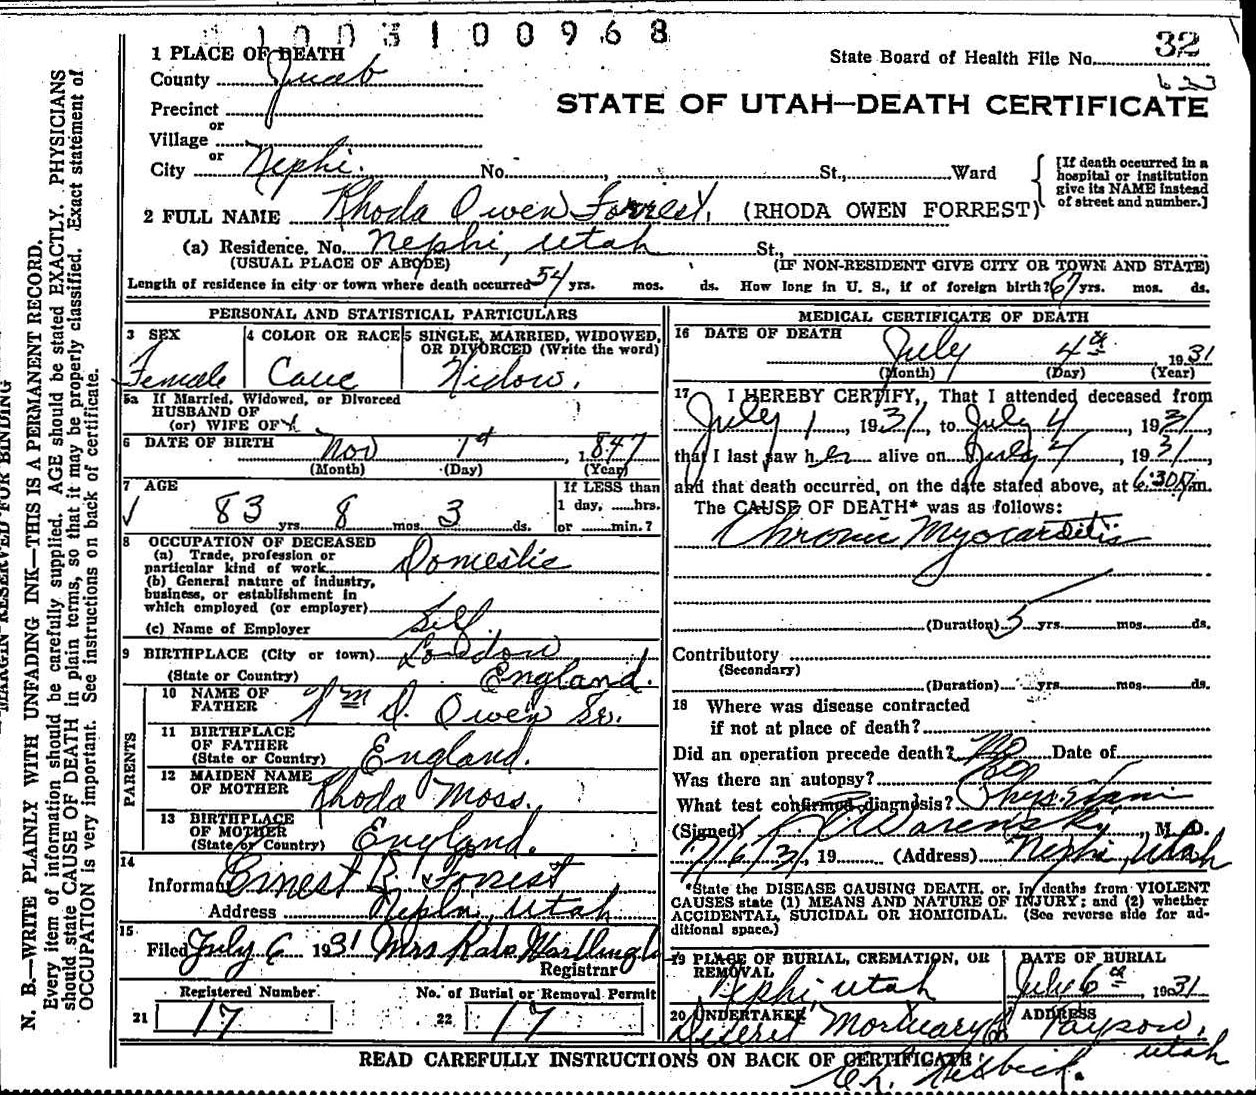 1003100968
1 PLACE OF DEATH
State Board of Health File No. 32
County Juab
623
STATE OF UTAH—DEATH CERTIFICATE
Precinct
or
Village
or
City Nephi. No. , St., Ward
[If death occurred in a hospital or institution give its NAME instead of street and number.]
2 FULL NAME Rhoda Owen Forrest, (RHODA OWEN FORREST)
(a) Residence. No. Nephi, Utah St.,
(USUAL PLACE OF ABODE) (IF NON-RESIDENT GIVE CITY OR TOWN AND STATE)
Length of residence in city or town where death occurred 54 yrs. mos. ds. How long in U. S., if of foreign birth? 67 yrs. mos. ds.
PERSONAL AND STATISTICAL PARTICULARS
3 SEX
Female
4 COLOR OR RACE
Cauc
5 SINGLE, MARRIED, WIDOWED,
OR DIVORCED (Write the word)
Widow.
5a If Married, Widowed, or Divorced
HUSBAND OF
(or) WIFE OF
6 DATE OF BIRTH Nov 1st, 1847
(Month) (Day) (Year)
7 AGE
83 yrs 8 mos 3 ds.
If LESS than
1 day, hrs.
or min.?
8 OCCUPATION OF DECEASED
(a) Trade, profession or
particular kind of work Domestic
(b) General nature of industry,
business, or establishment in
which employed (or employer)
(c) Name of Employer Self
9 BIRTHPLACE (City or town) London
(State or Country) England.
PARENTS
10 NAME OF
FATHER Wm D. Owen Sr.
11 BIRTHPLACE
OF FATHER
(State or Country) England.
12 MAIDEN NAME
OF MOTHER Rhoda Moss.
13 BIRTHPLACE
OF MOTHER
(State or Country) England.
14
Informant Ernest R. Forrest
Address Nephi, Utah
15
Filed July 6 1931 Mrs Kate
Registrar
Registered Number
21 17
No. of Burial or Removal Permit
22 17
MEDICAL CERTIFICATE OF DEATH
16 DATE OF DEATH
July 4th, 1931
(Month) (Day) (Year)
17 I HEREBY CERTIFY, That I attended deceased from
July 1, 1931, to July 4, 1931,
that I last saw her alive on July 4, 1931,
and that death occurred, on the date stated above, at 6:30 P.m.
The CAUSE OF DEATH* was as follows:
Chronic Myocarditis
(Duration) 5 yrs. mos. ds.
Contributory
(Secondary)
(Duration) yrs. mos. ds.
18 Where was disease contracted
if not at place of death?
Did an operation precede death? No Date of
Was there an autopsy? No
What test confirmed diagnosis? Phys. Exam
(Signed) Warenski, M. D.
7/6/31, 19 (Address) Nephi, Utah
*State the DISEASE CAUSING DEATH, or, in deaths from VIOLENT
CAUSES state (1) MEANS AND NATURE OF INJURY; and (2) whether
ACCIDENTAL, SUICIDAL OR HOMICIDAL. (See reverse side for ad-
ditional space.)
19 PLACE OF BURIAL, CREMATION, OR
REMOVAL
Nephi, Utah
DATE OF BURIAL
July 6th, 1931
20 UNDERTAKER
Deseret Mortuary Co
ADDRESS
Payson,
Utah
READ CAREFULLY INSTRUCTIONS ON BACK OF CERTIFICATE
MARGIN RESERVED FOR BINDING
N. B.—WRITE PLAINLY WITH UNFADING INK—THIS IS A PERMANENT RECORD.
Every item of information should be carefully supplied. AGE should be stated EXACTLY. PHYSICIANS
should state CAUSE OF DEATH in plain terms, so that it may be properly classified. Exact statement of
OCCUPATION is very important. See instructions on back of certificate.